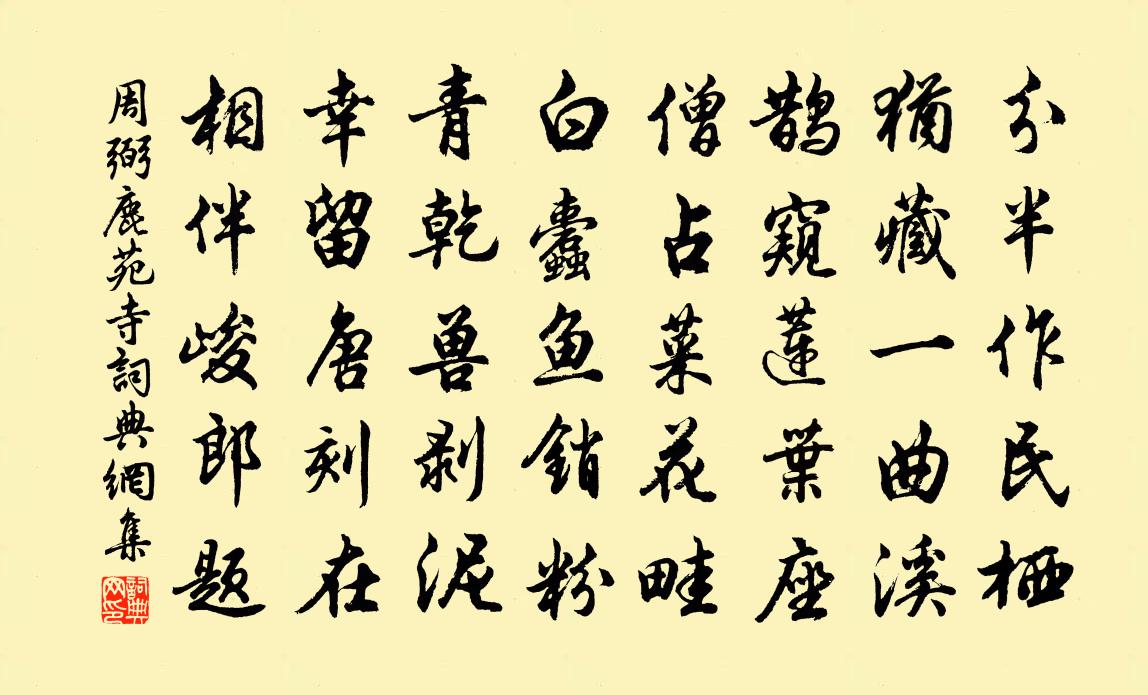 分半作民栖
猶藏一曲溪
鹊窺蓮葉座
僧占菜花畦
白蠹魚銷粉
青乾兽剥泥
幸留唐刻在
相伴峻郎题
周弼鹿苑寺詞典網集